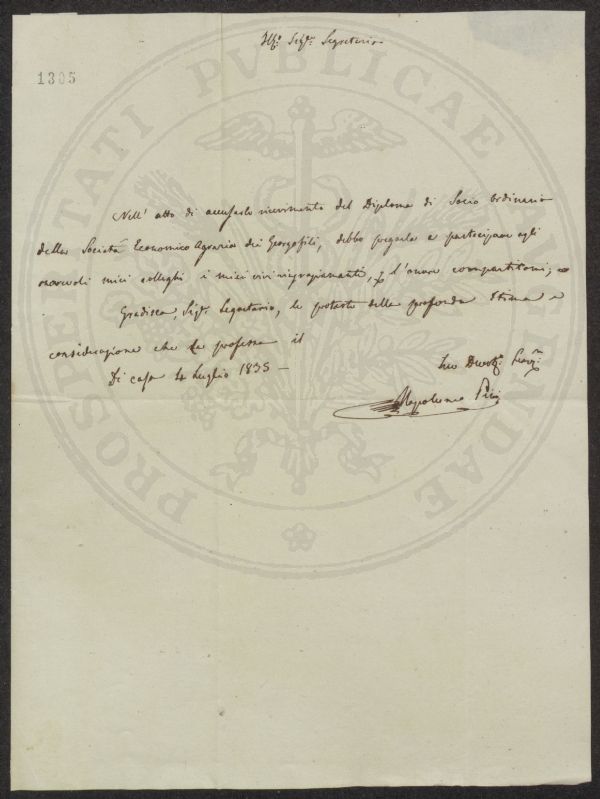 Ill.º Sig.r Segretario
1305
PROSPERITATI PUBLICAE AUGENDAE
Nell' atto di accusarle ricevimento del Diploma di Socio Ordinario
della Società Economico Agraria dei Georgofili, debbo pregarla a partecipare agli
onorevoli miei colleghi i miei vivi ringraziamenti, p l'onore compartitomi; e
Gradisca, Sig.r Segretario, le proteste della profonda stima e
considerazione che Le professa il
Di casa 4 Luglio 1835 —
Suo Devot.º Serv.
Napoleone Pini